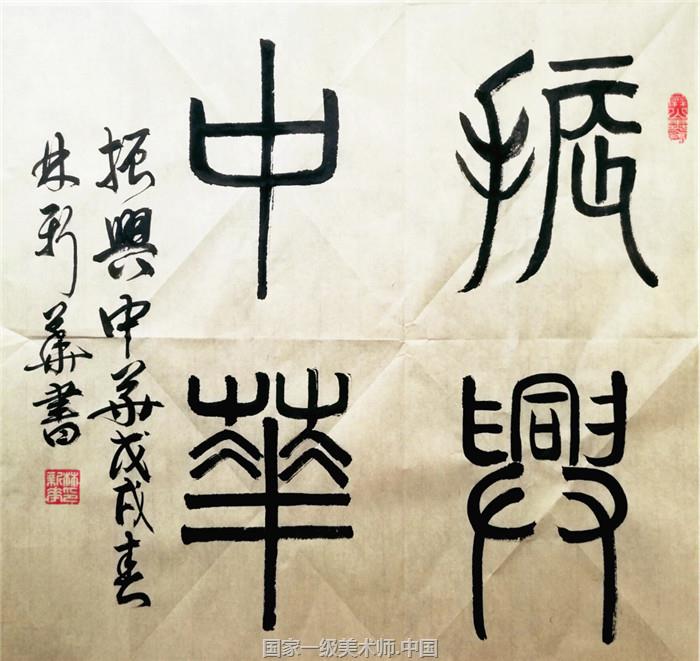 振興
中華
振興中華戊戌春
林新華書
國家一级美术师.中国